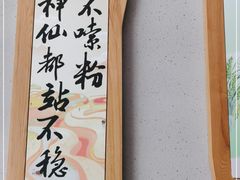 不嗦粉
神仙都站不稳